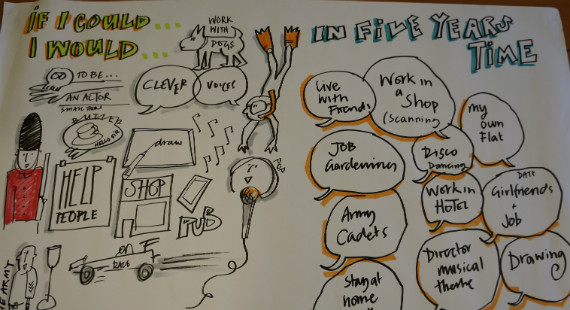 iF i COULD...
I WOULD...
WORK
WITH
DOGS
TO BE...
AN ACTOR
CLEVER
VOICES
draw
HELP
PEOPLE
SHOP
PUB
ARMY
iN FiVE YEARS
TiME
Live
with
Friends
Work in
a
Shop
(scanning)
my
own
Flat
JOB
Gardening
Disco
Dancing
Work in
HOTEL
DATE
Girlfriends
+
Job
Army
Cadets
Director
musical
theatre
Drawing
Stay at
home